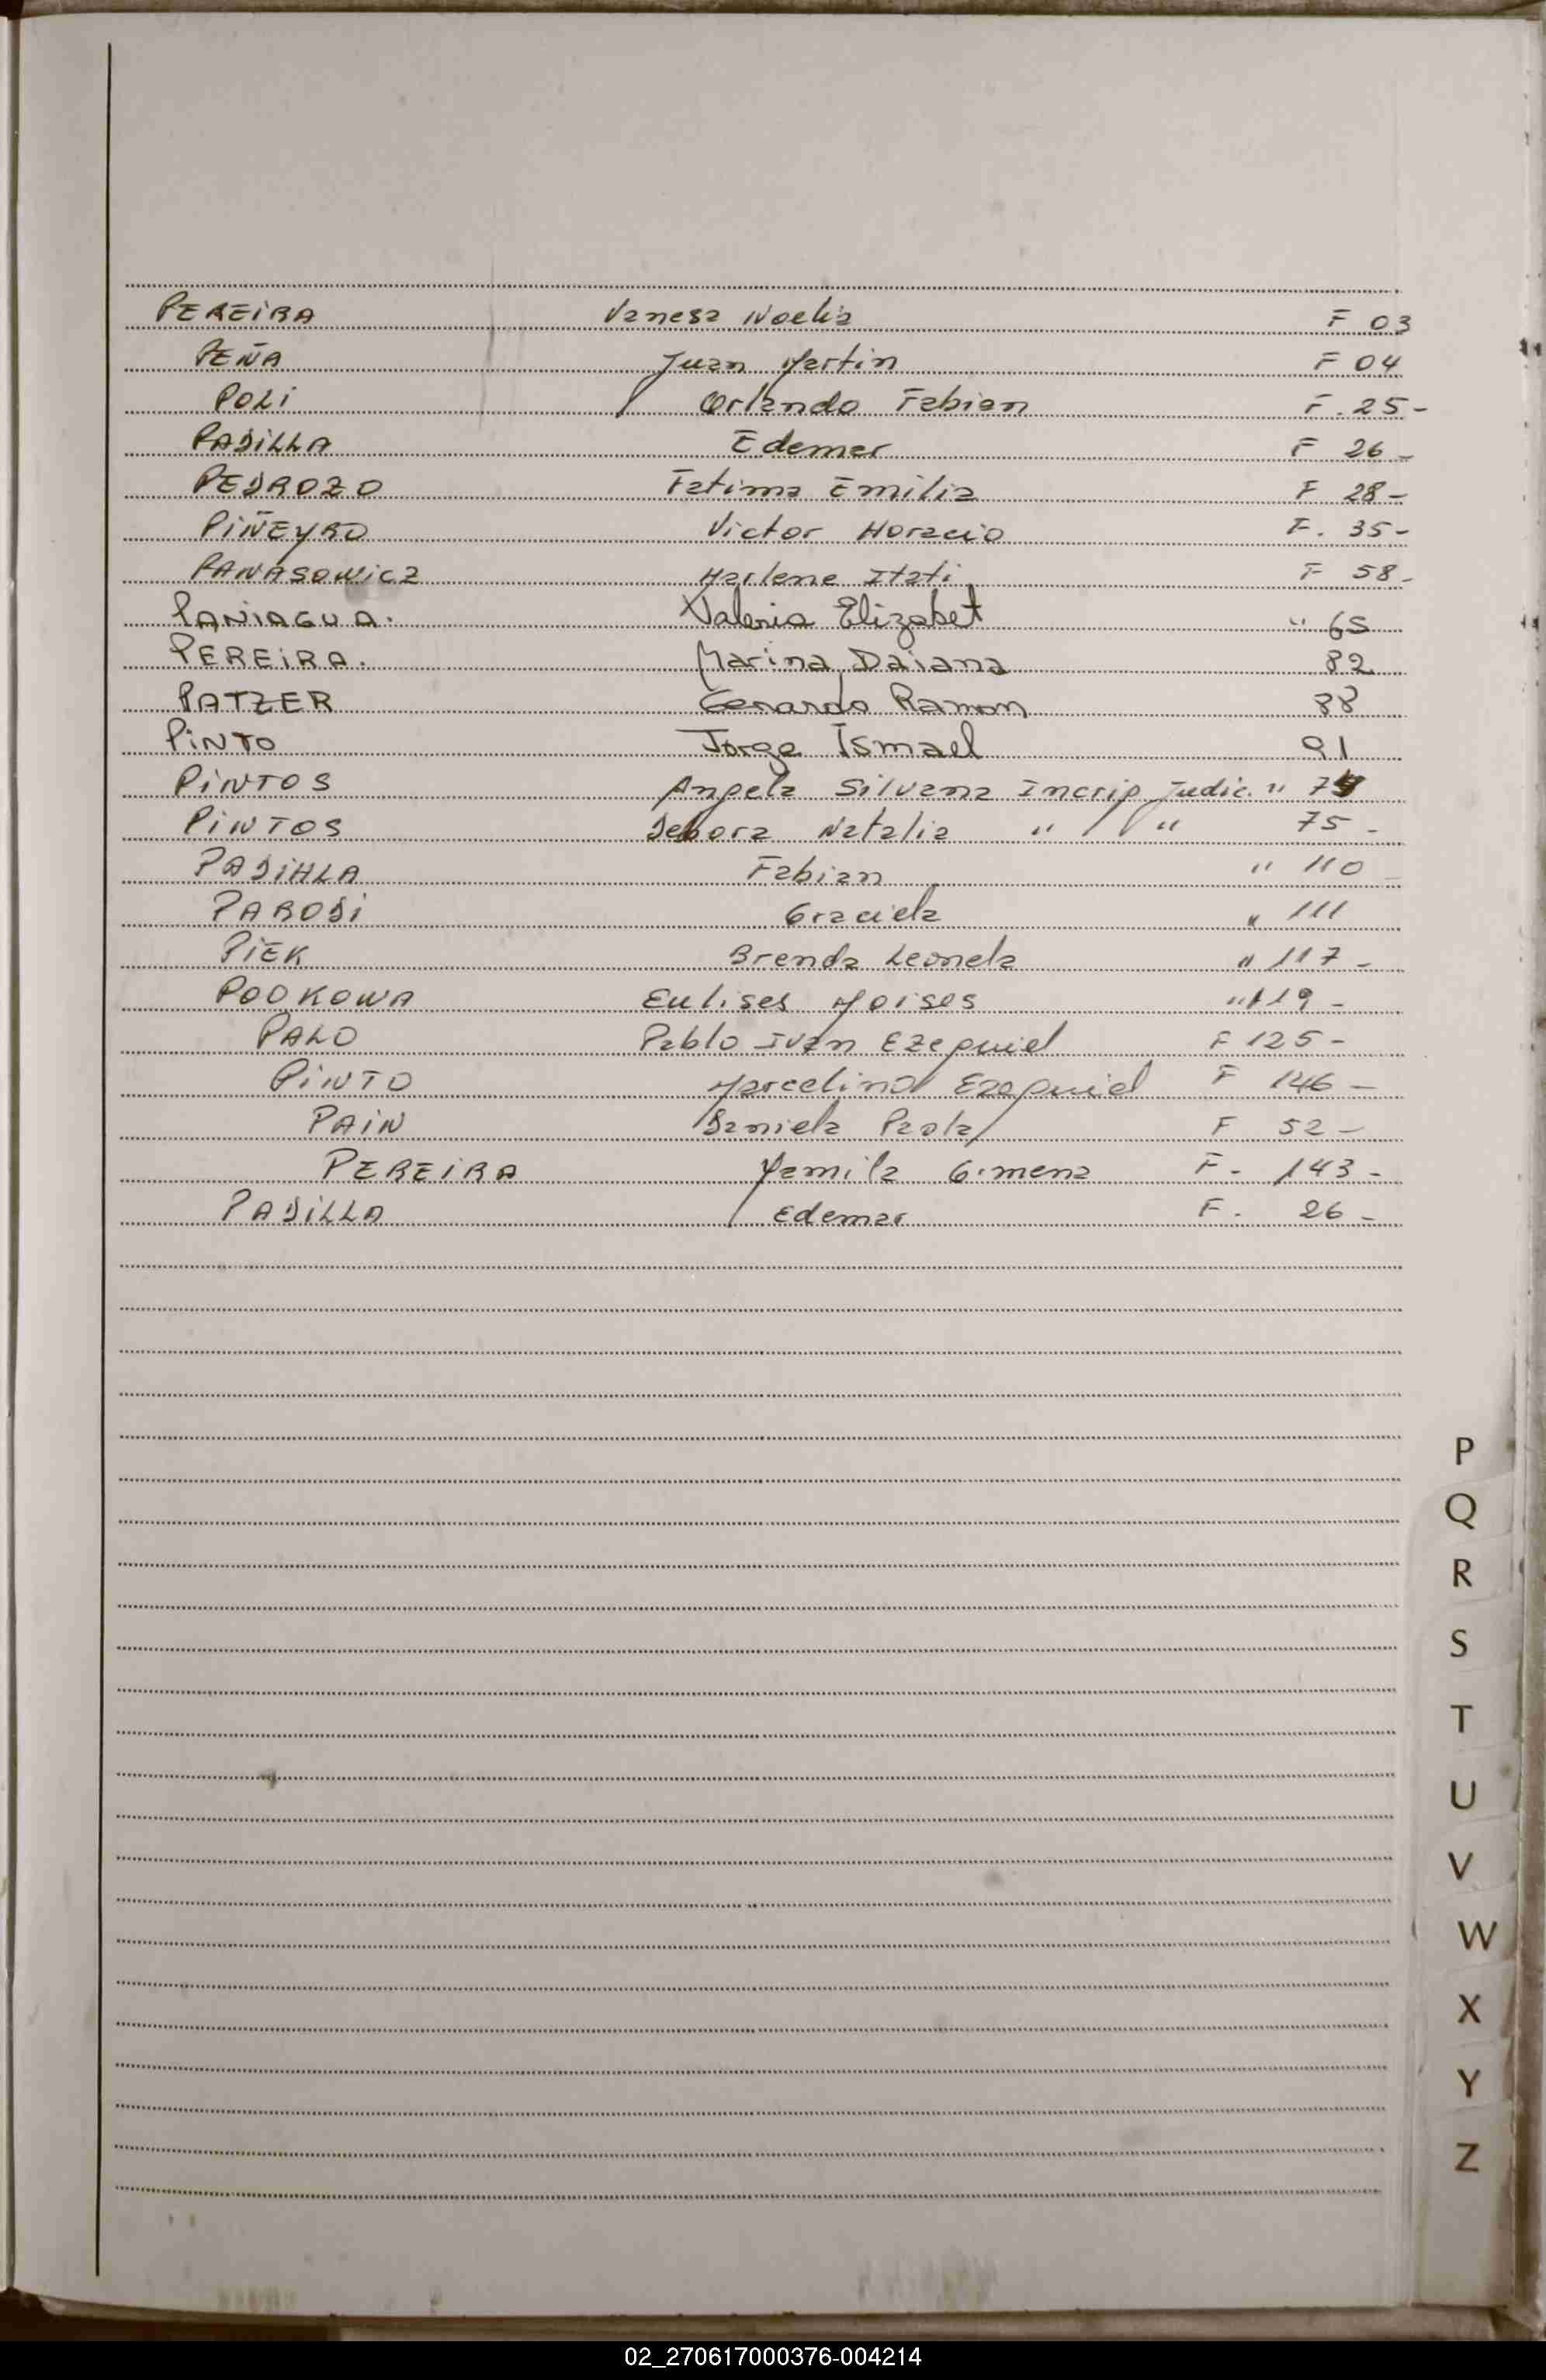 PEREIRA Vanesa Noelia F 03
PEÑA Juan Martin F 04
POLI Orlando Fabian F. 25-
PADILLA Edemar F 26-
PEDROZO Fatima Emilia F 28-
PIÑEYRO Victor Horacio F. 35-
PANASOWICZ Marlene Itati F 58-
PANIAGUA. Valeria Elizabet " 65
PEREIRA. Marina Daiana 82
PATZER Gerardo Ramon 88
PINTO Jorge Ismael 91
PINTOS Angela Silvana Incrip Judic. " 74
PINTOS Debora Natalia " " 75-
PADILLA Fabian " 110-
PARODI Graciela " 111
PIEK Brenda Leonela " 117-
PODKOWA Eulises Moises " 119-
PALO Pablo Ivan Ezequiel F 125-
PINTO Marcelino Ezequiel F 146-
PAIN Daniela Paola F 52-
PEREIRA Yamila Gimena F- 143-
PADILLA Edemar F. 26-
P
Q
R
S
T
U
V
W
X
Y
Z
02_270617000376-004214